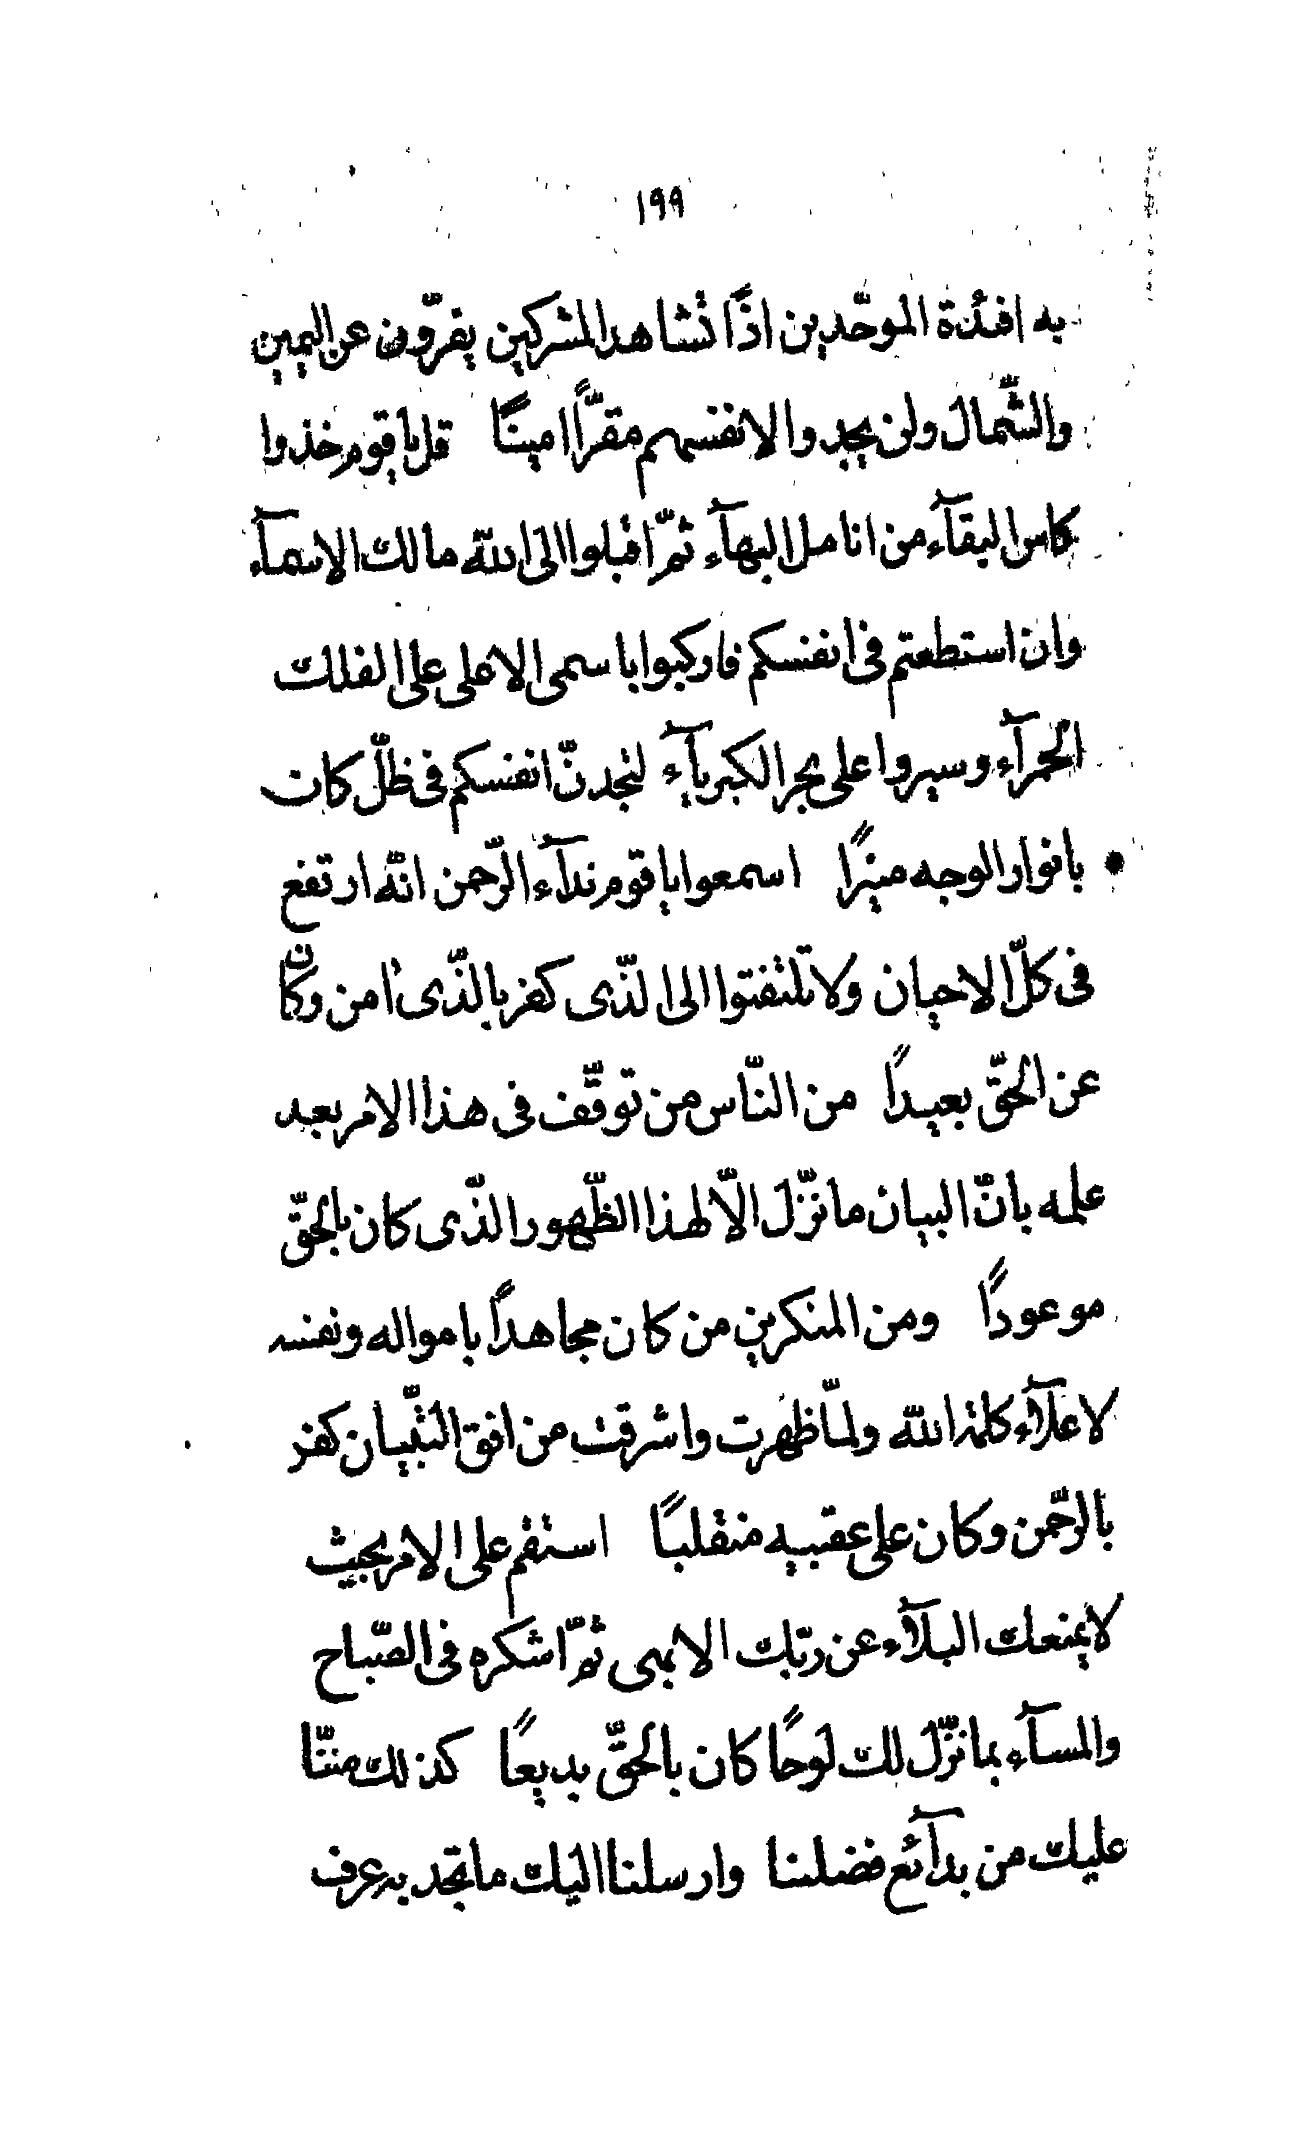 ١٩٩
به افئدة الموحّدين اذًا نشاهد المشركين يفرّون عن اليمين
والشّمال ولن يجدوا لانفسهم مقرًّا امينًا قل يا قوم خذوا
كاس البقآء من انامل البهآء ثمّ اقبلوا الى الله مالك الاسمآء
وان استطعتم فى انفسكم فاركبوا باسمى الاعلى على الفلك
الحمرآء وسيروا على بحر الكبريآء لنجدنّ انفسكم فى ظلّ كان
بانوار الوجه منيرًا اسمعوا يا قوم ندآء الرّحمن انّه ارتفع
فى كلّ الاحيان ولا تلتفتوا الى الّذى كفر بالّذى اٰمن وكان
عن الحقّ بعيدًا من النّاس من توقّف فى هذا الامر بعد
علمه بانّ البيان ما نزّل الّا لهذا الظّهور الّذى كان بالحقّ
موعودًا ومن المنكرين من كان مجاهدًا بامواله ونفسه
لاعلآء كلمة الله ولمّا ظهرت واشرقت من افق التّبيان كفر
بالرّحمن وكان على عقبيه منقلبًا استقم على الامر بحيث
لا يمنعك البلآء عن ربّك الابهى ثمّ اشكره فى الصّباح
والمسآء بما نزّل لك لوحًا كان بالحقّ بديعًا كذلك مننّا
عليك من بدآئع فضلنا وارسلنا اليك ما تجد به عرف